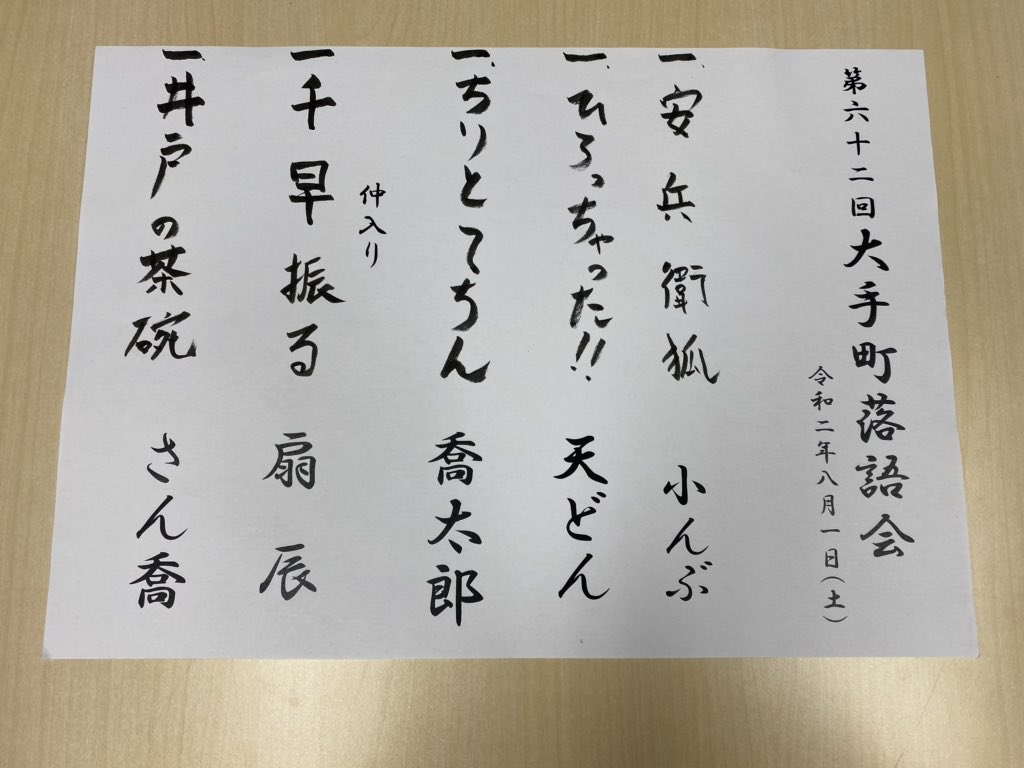 第六十二回大手町落語会
令和二年八月一日(土)
一、安兵衛狐 小んぶ
一、ひろっちゃった!! 天どん
一、ちりとてちん 喬太郎
仲入り
一、千早振る 扇辰
一、井戸の茶碗 さん喬